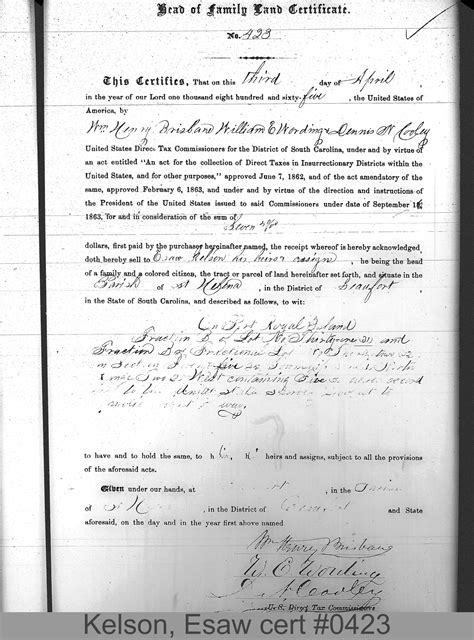 Head of Family Land Certificate.
No. 423
This Certifies, That on this third day of April
in the year of our Lord one thousand eight hundred and sixty-five, the United States of
America, by
Wm Henry Brisbane William E Wording & Dennis N Cooley
United States Direct Tax Commissioners for the District of South Carolina, under and by virtue of
an act entitled "An act for the collection of Direct Taxes in Insurrectionary Districts within the
United States, and for other purposes," approved June 7, 1862, and of the act amendatory of the
same, approved February 6, 1863, and under and by virtue of the direction and instructions of
the President of the United States issued to said Commissioners under date of September 16,
1863, for and in consideration of the sum of
Seven
dollars, first paid by the purchaser hereinafter named, the receipt whereof is hereby acknowledged,
doth hereby sell to Esaw Kelson his heirs & assigns, he being the head
of a family and a colored citizen, the tract or parcel of land hereinafter set forth, and situate in the
Parish of St Helena, in the District of Beaufort
in the State of South Carolina, and described as follows, to wit:
On Port Royal Island
Fraction D of Lot No Thirty one 31 and
Fraction D of Lot
in Section five
One 2 West containing Five acres
to be under
to have and to hold the same, to his heirs and assigns, subject to all the provisions
of the aforesaid acts.
Given under our hands, at in the
of St H , in the District of and State
aforesaid, on the day and in the year first above named
Wm Henry Brisbane
W. E. Wording
D. N. Cooley
U.S. Direct Tax Commissioners
Kelson, Esaw cert #0423